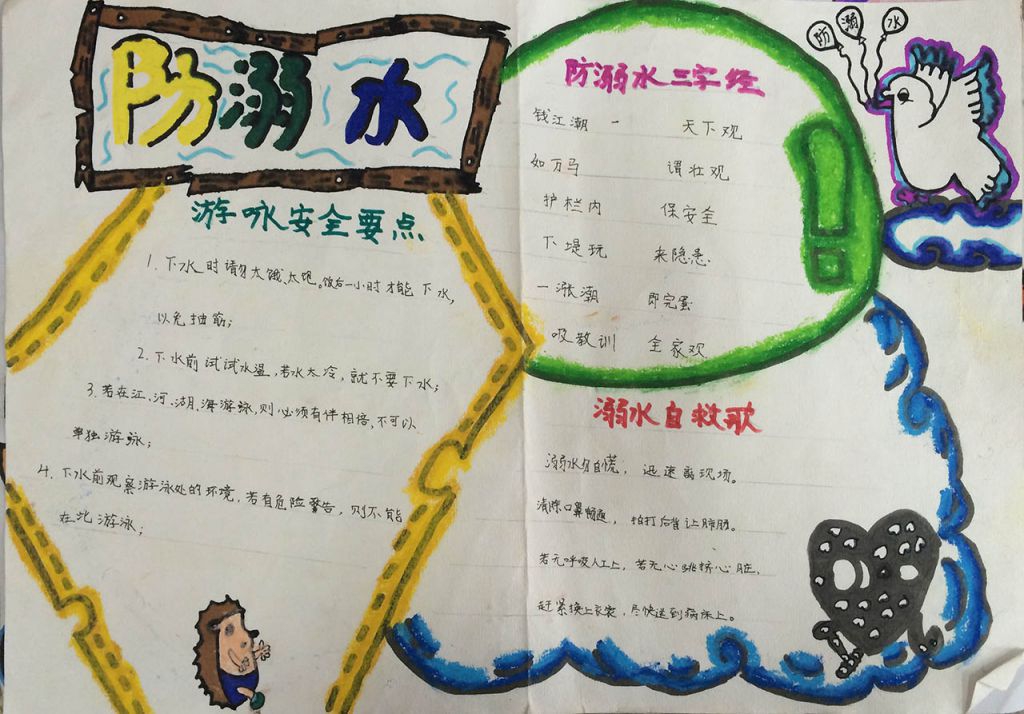 防溺水
游咏安全要点
1. 下水时请勿太饿、太饱。饭后一小时才能下水,
以免抽筋;
2. 下水前试试水温, 若水太冷, 就不要下水;
3. 若在江、河、湖、海游泳, 则必须有伴相陪, 不可以
单独游泳;
4. 下水前观察游泳处的环境, 若有危险警告, 则不能
在此游泳;
防溺水三字经
钱江潮 一 天下观
如万马 谓壮观
护栏内 保安全
下堤玩 来隐患.
一涨潮 即完蛋
吸教训 全家欢
溺水自救歌
溺水勿自慌, 迅速离现场。
清除口鼻畅通, 拍打后背让肺肠。
若无呼吸人工上, 若无心跳挤心脏,
赶紧换上衣裳, 尽快送到病床上。
防 溺 水